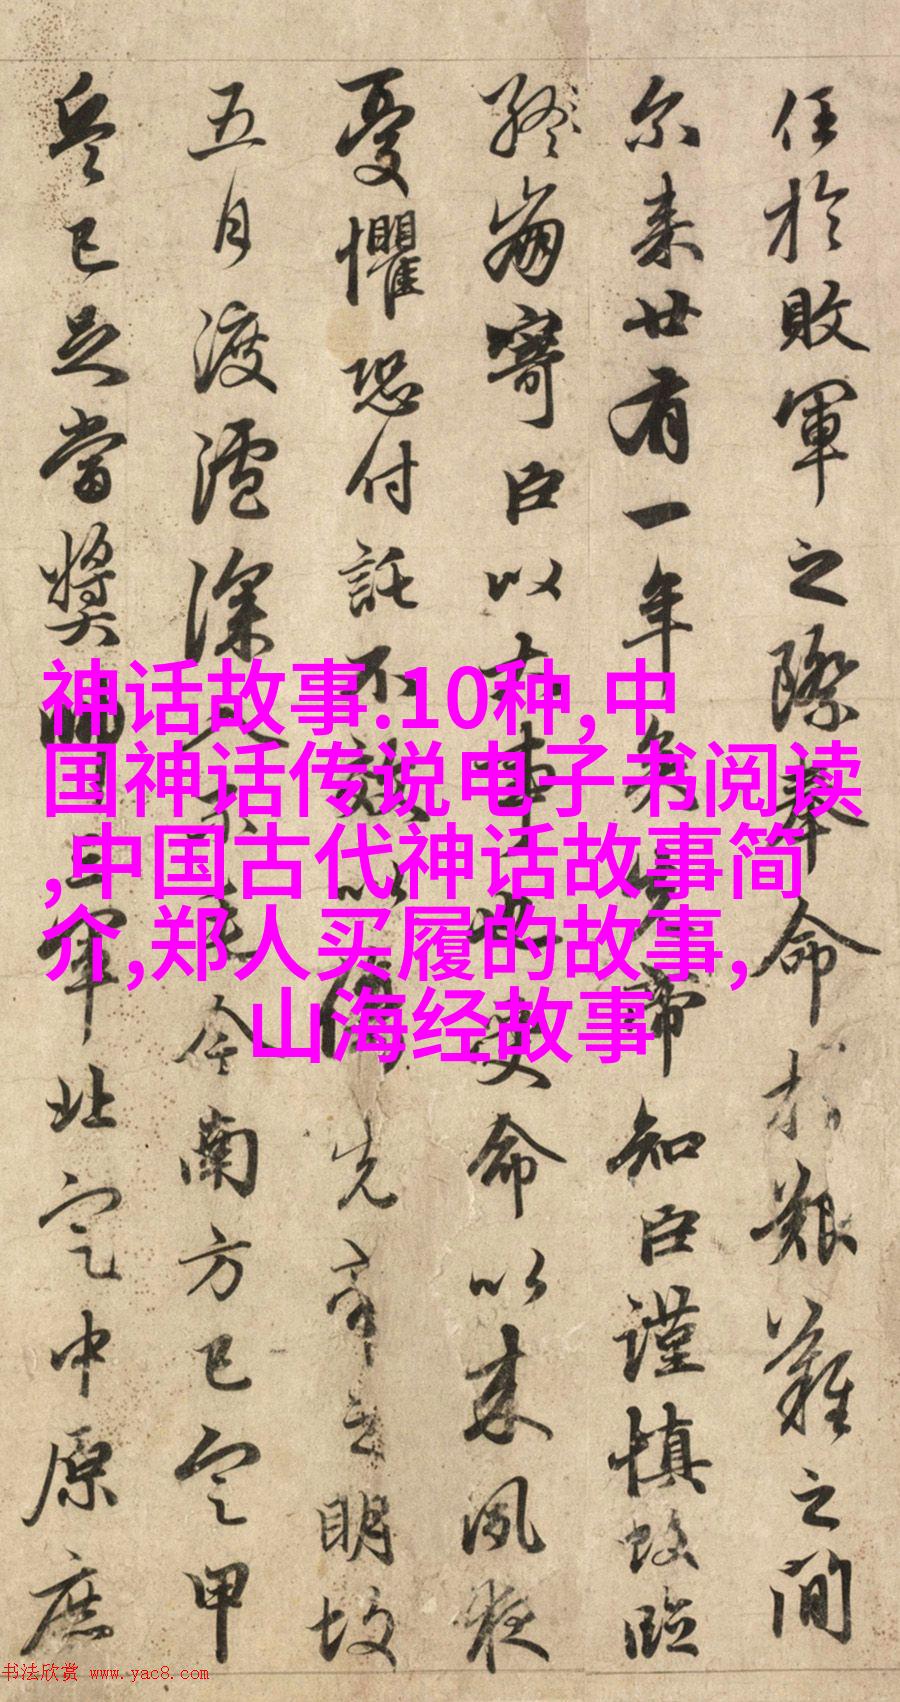 任於敗軍之際奉命於艱難之間
尔来廿有一年矣先帝知臣謹慎故臨
終崩寄臣以大事也受命以来夙夜
憂懼恐付託不效以傷先帝之明故
五月渡瀘深入不毛今南方已定甲
兵已足當獎帥三軍北定中原庶
神话故事.10种,中
国神话传说电子书阅读
,中国古代神话故事简
介,郑人买履的故事,
山海经故事
书法欣赏 www.yac8.com